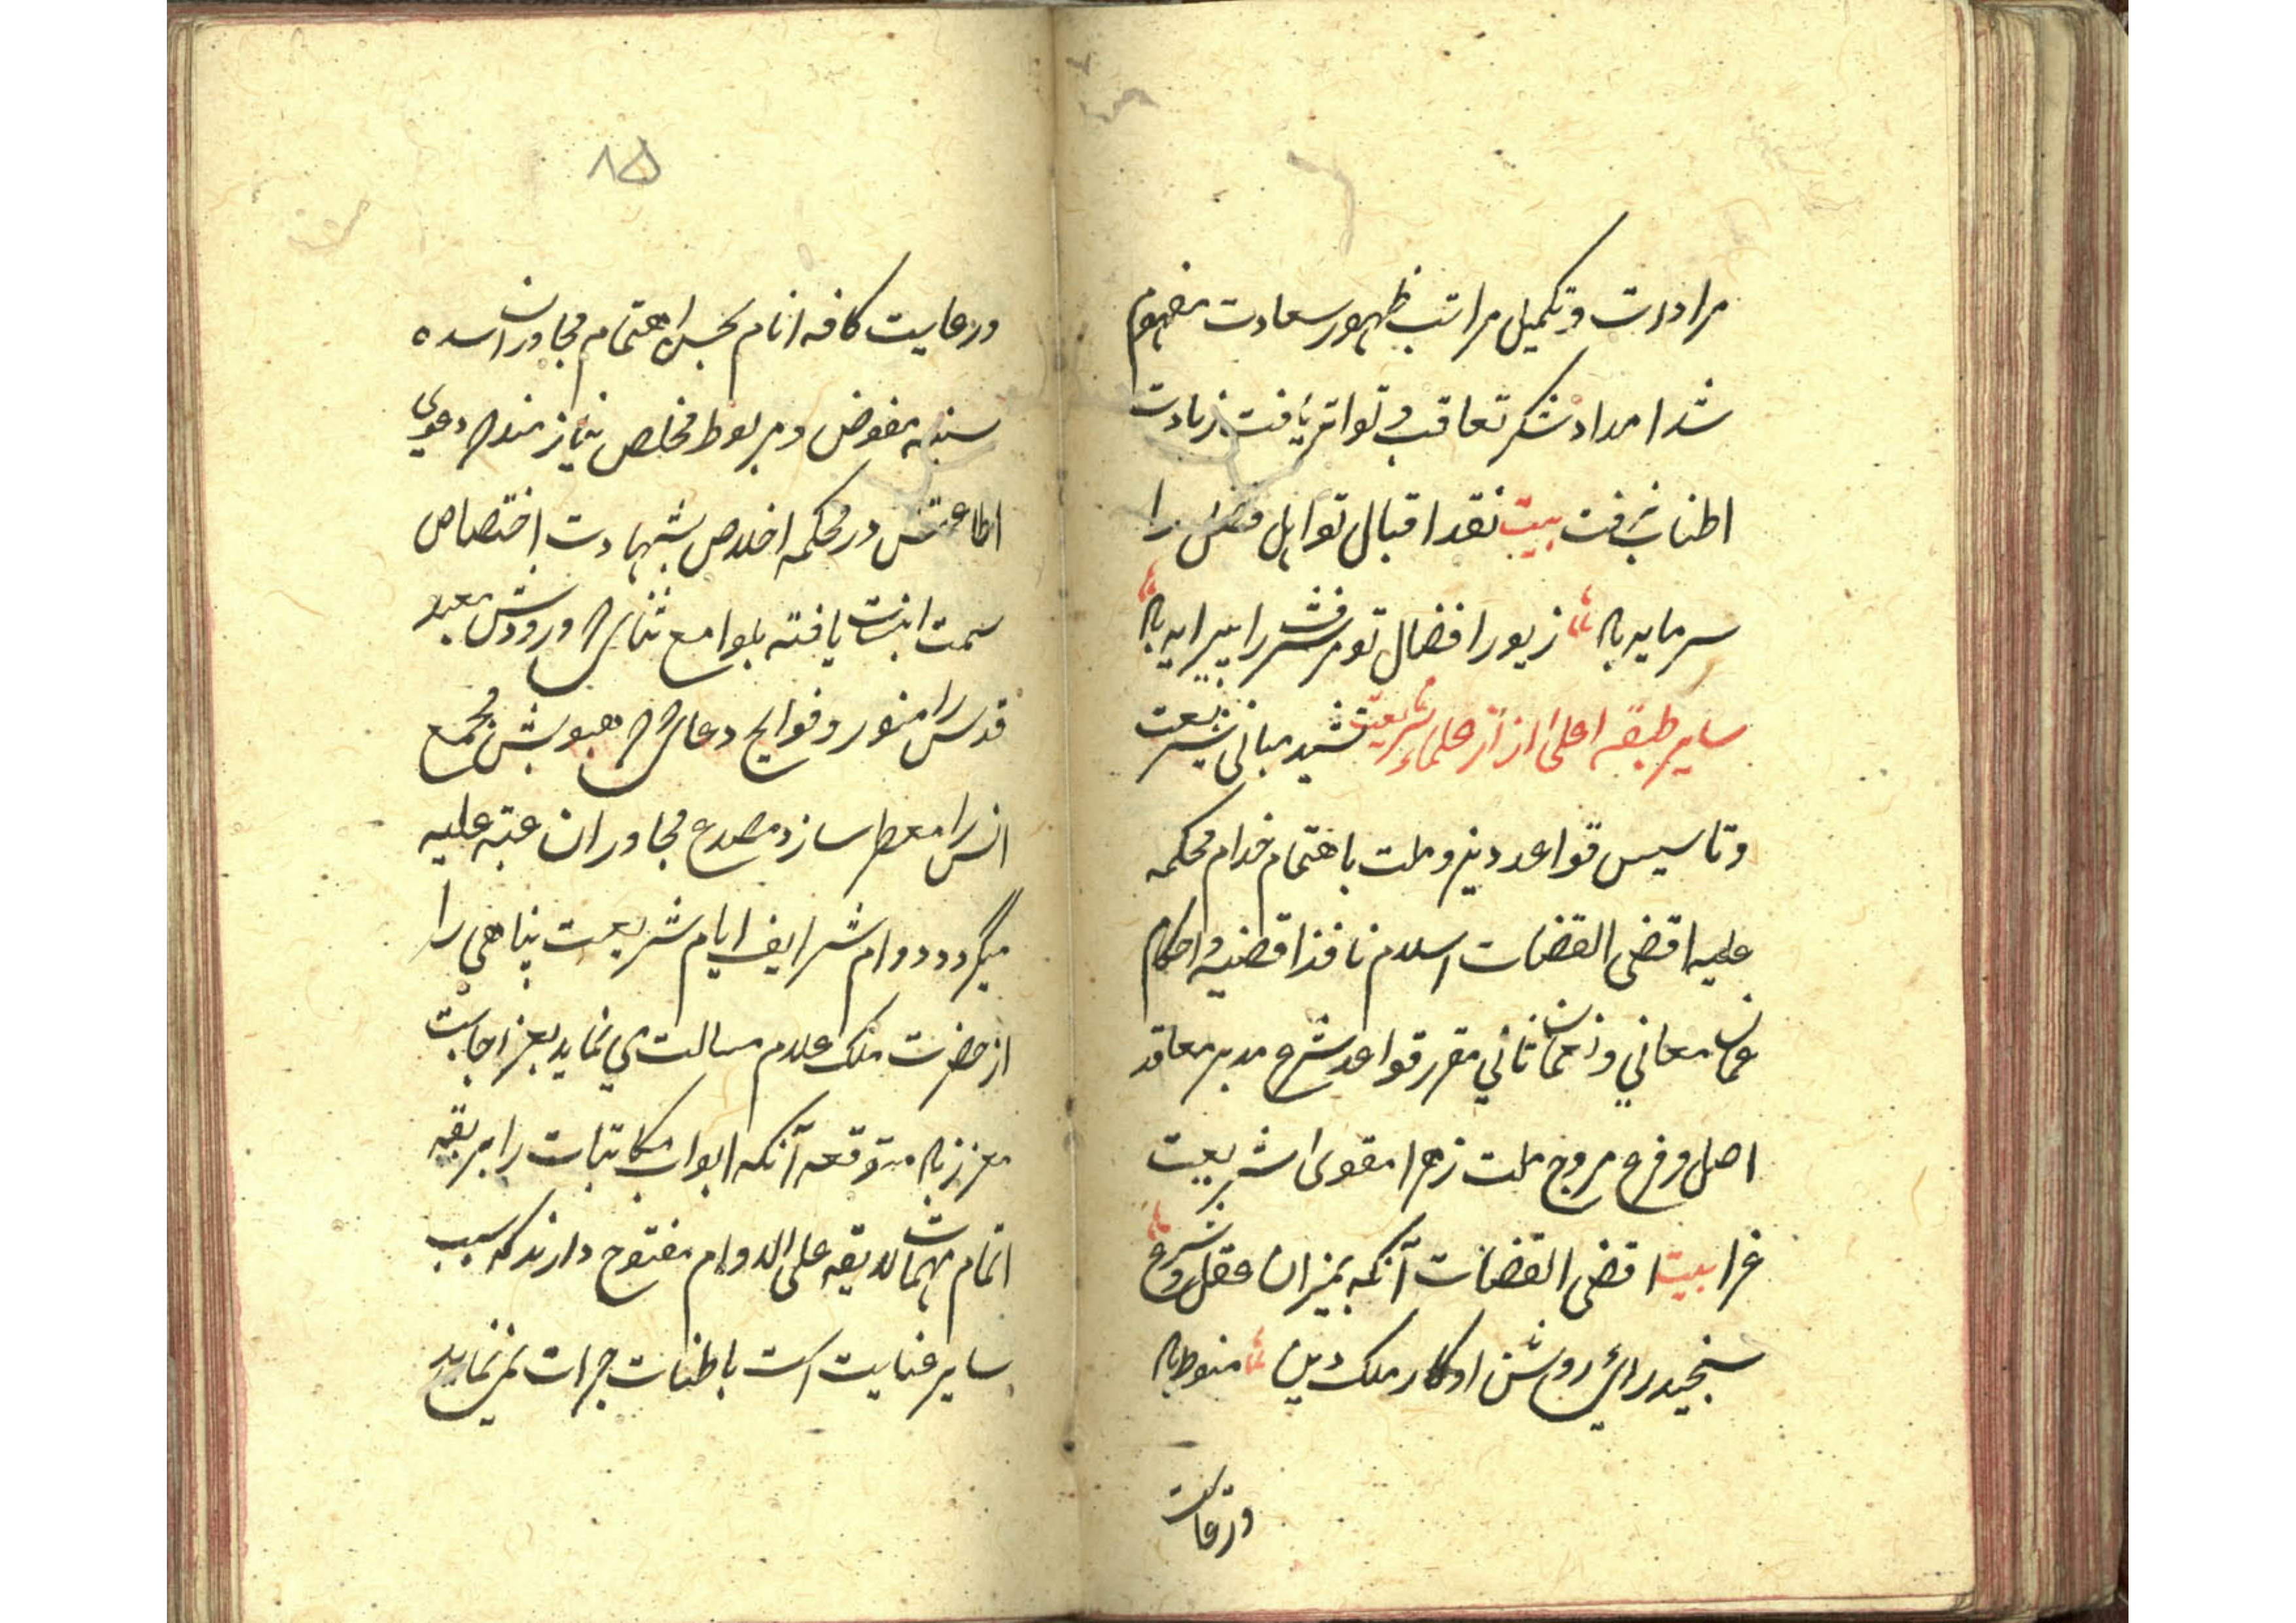 مرادات و تکمیل مراتب ظهور سعادت مفهوم
شد امداد شکر تعاقب و تواتر یافت زیادت
اطناب نرفت بیت نقد اقبال تو اهل فضل را
سرمایه باد زیور افضال تو مر شرف را پیرایه باد
سایر طبقه اعلی از علماء شریعت تشید مبانی شریعت
و تاسیس قواعد دین و ملت باهتمام خدام محکمه
علیه اقضی القضات اسلام نافذ اقضیه و احکام
عمان معانی و نعمان ثانی مقرر قواعد شرع مدبر معاقد
اصل و فرع مروج ملت زهرا مقوی شریعت
غرا بیت اقضی القضات آنکه بمیزان عقل و شرع
سنجید رای روشن او کار ملک و دین منوط باد
ورعایت
۸۵
ورعایت کافه انام بحسن اهتمام مجاوران سده
سنیه مفوض و مربوط مخلص نیازمند که دعوی
اطاعتش در محکمه اخلاص بشهادت اختصاص
سمت اثبات یافته بلوامع ثنای که ورودش معبد
قدس را منور و فوایح دعای که هبوبش مجمع
انس را معطر سازد مصدع مجاوران عتبه علیه
میگردد دوام شرایف ایام شریعت پناهی را
از حضرت ملک علام مسالت می نماید بعز اجابت
معزز باد متوقعه آنکه ابواب مکاتبات را بریقه
اتمام مهمات لایقه علی الدوام مفتوح دارند که سبب
سایر عنایت است باطناب جرات نمی نماید